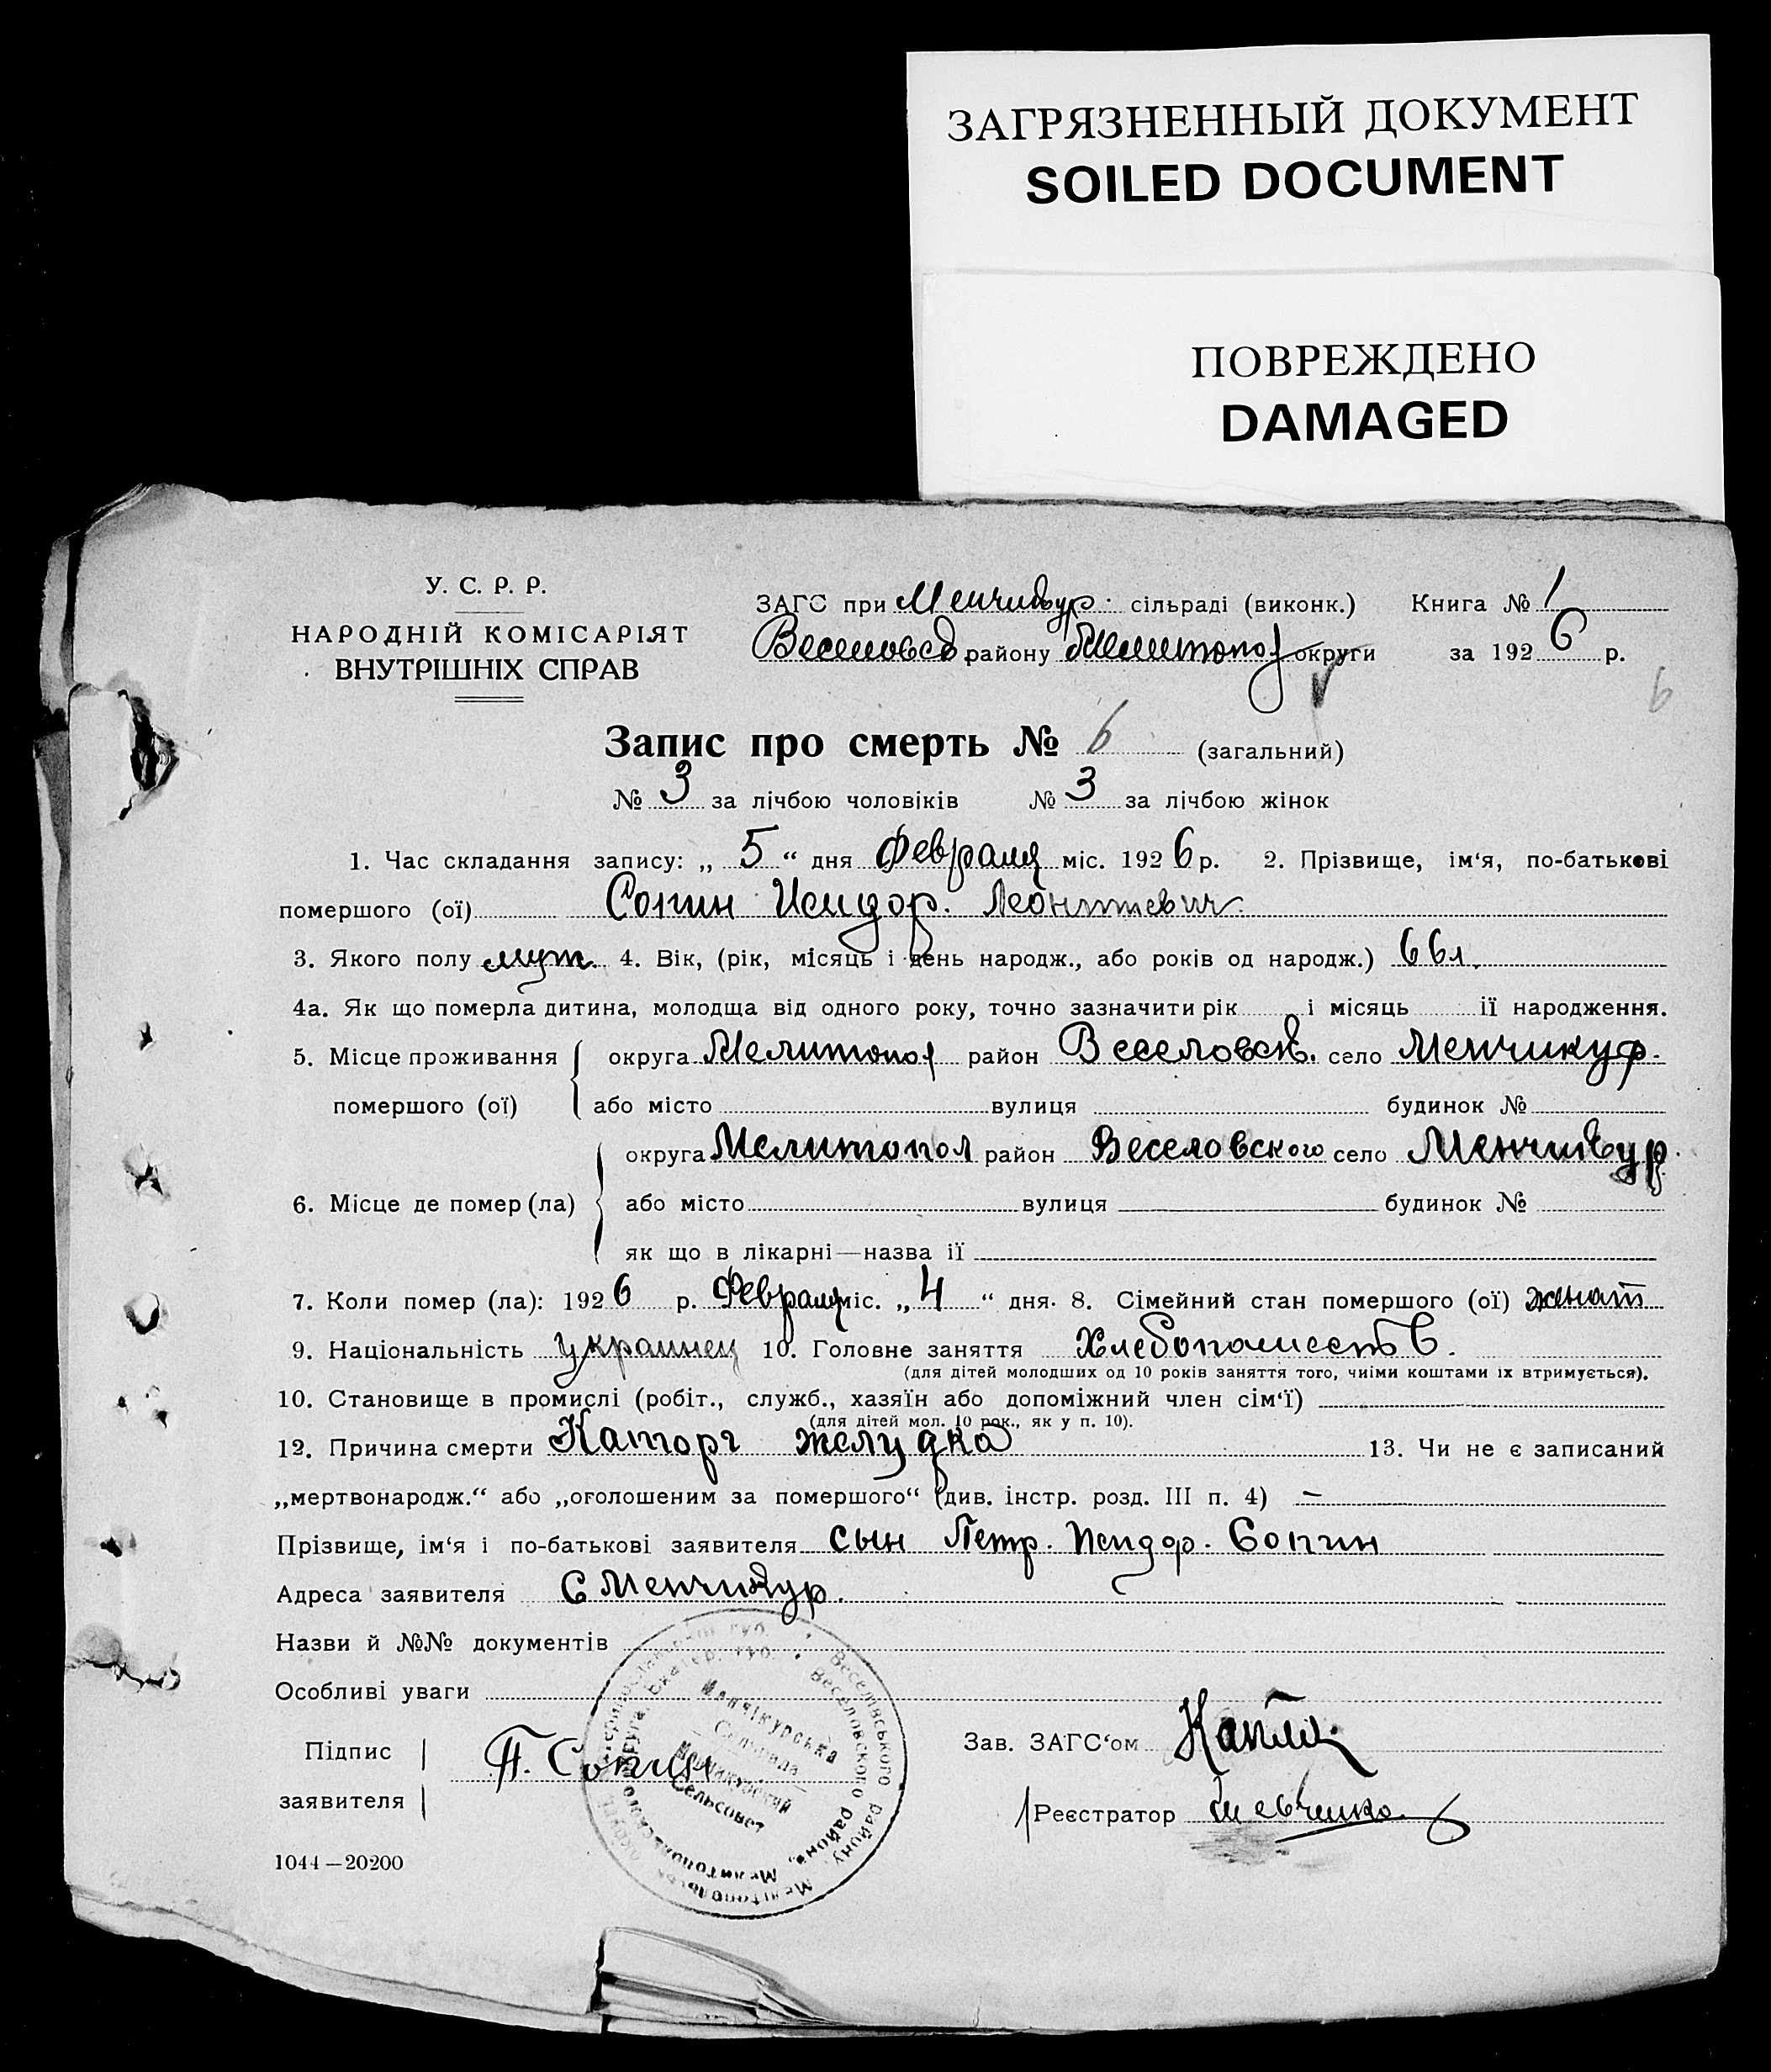 ЗАГРЯЗНЕННЫЙ ДОКУМЕНТ
SOILED DOCUMENT
ПОВРЕЖДЕНО
DAMAGED
У. С. Р. Р.
НАРОДНІЙ КОМІСАРІЯТ
ВНУТРІШНІХ СПРАВ
ЗАГС при Менчикур. сільраді (виконк.) Книга № 1
Веселовск. району Мелитопол округи за 1926 р.
6
Запис про смерть № 6 (загальний)
№ 3 за лічбою чоловіків № 3 за лічбою жінок
1. Час складання запису: „ 5 “ дня Февраля міс. 1926 р. 2. Прізвище, ім‘я, по-батькові
помершого (ої) Сопин Исидор. Леонтиевич
3. Якого полу муж. 4. Вік, (рік, місяць і день народж., або років од народж.) 66 л.
4а. Як що померла дитина, молодща від одного року, точно зазначити рік і місяць її народження.
5. Місце проживання помершого (ої) округа Мелитопол район Веселовск. село Менчикур.
або місто вулиця будинок №
6. Місце де помер (ла) округа Мелитопол район Веселовского село Менчикур.
або місто вулиця будинок №
як що в лікарні—назва її
7. Коли помер (ла): 1926 р. Февраля міс. „ 4 “ дня. 8. Сімейний стан помершого (ої) женат
9. Національність украинец 10. Головне заняття
(для дітей молодших од 10 років заняття того, чиїми коштами їх втримується).
10. Становище в промислі (робіт., служб., хазяїн або допоміжний член сім‘ї)
(для дітей мол. 10 рок., як у п. 10).
12. Причина смерти желудка 13. Чи не є записаний
„мертвонародж.“ або „оголошеним за помершого“ (див. інстр. розд. III п. 4) –
Прізвище, ім‘я і по-батькові заявителя сын Петр. Исидор. Сопин
Адреса заявителя С Менчикур.
Назви й №№ документів
Особливі уваги
Підпис заявителя П. Сопин
Зав. ЗАГС‘ом
Реєстратор Шевченко
Менчікурська
Сельрада
Менчикурский
Сельсовет
Веселівського району, Мелітопольськ
Веселовского района, Мелитопольского округа, Екатер. губ.
1044—20200